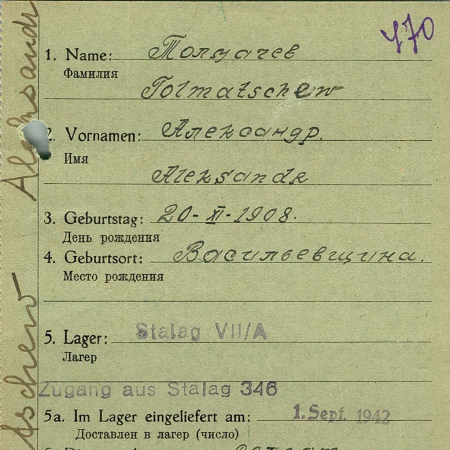 470
1. Name: Толмачев
Фамилия
Tolmatschew
2. Vornamen: Александр.
Имя
Aleksandr
3. Geburtstag: 20-XI-1908.
День рождения
4. Geburtsort: Васильевщина.
Место рождения
5. Lager: Stalag VII/A
Лагерь
Zugang aus Stalag 346
5a. Im Lager eingeliefert am: 1. Sept. 1942
Доставлен в лагерь (число)
Aleksandr